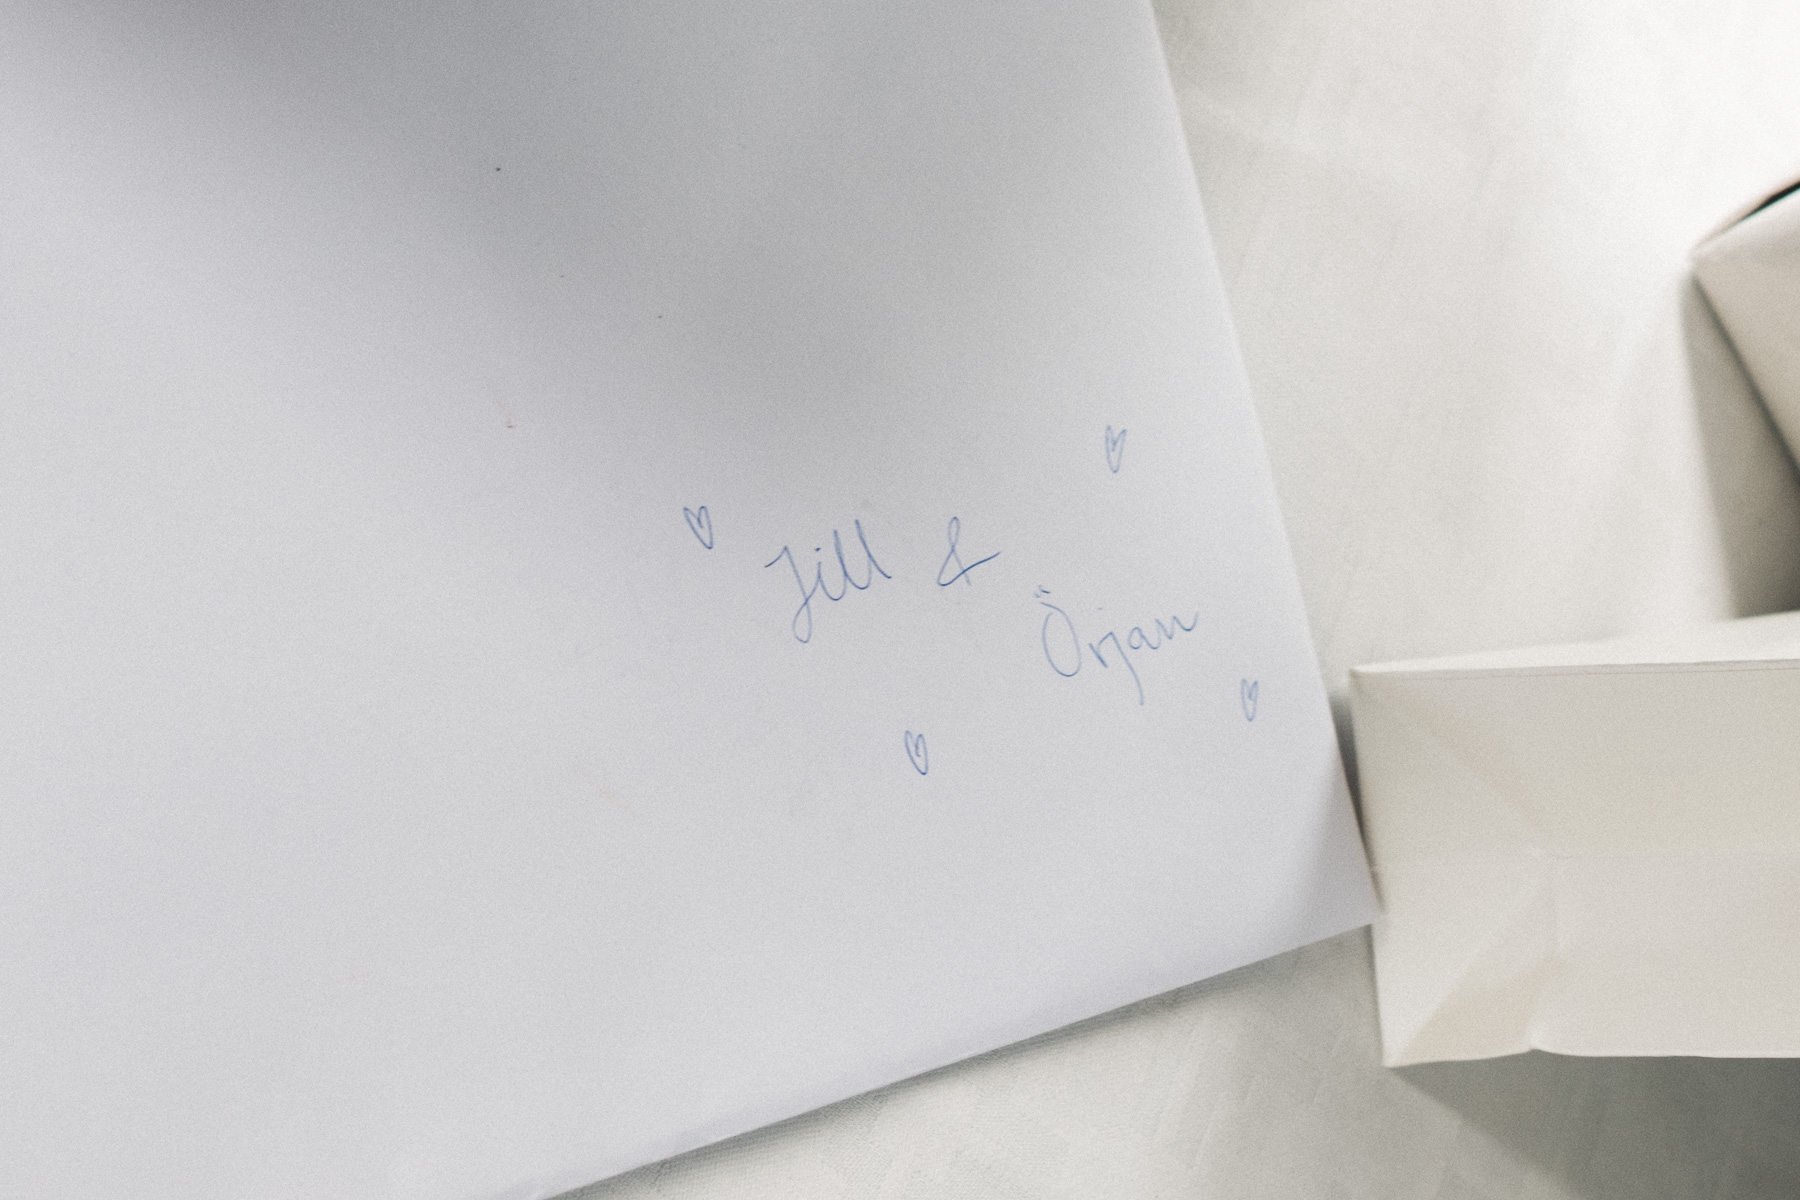 Jill &
Örjan